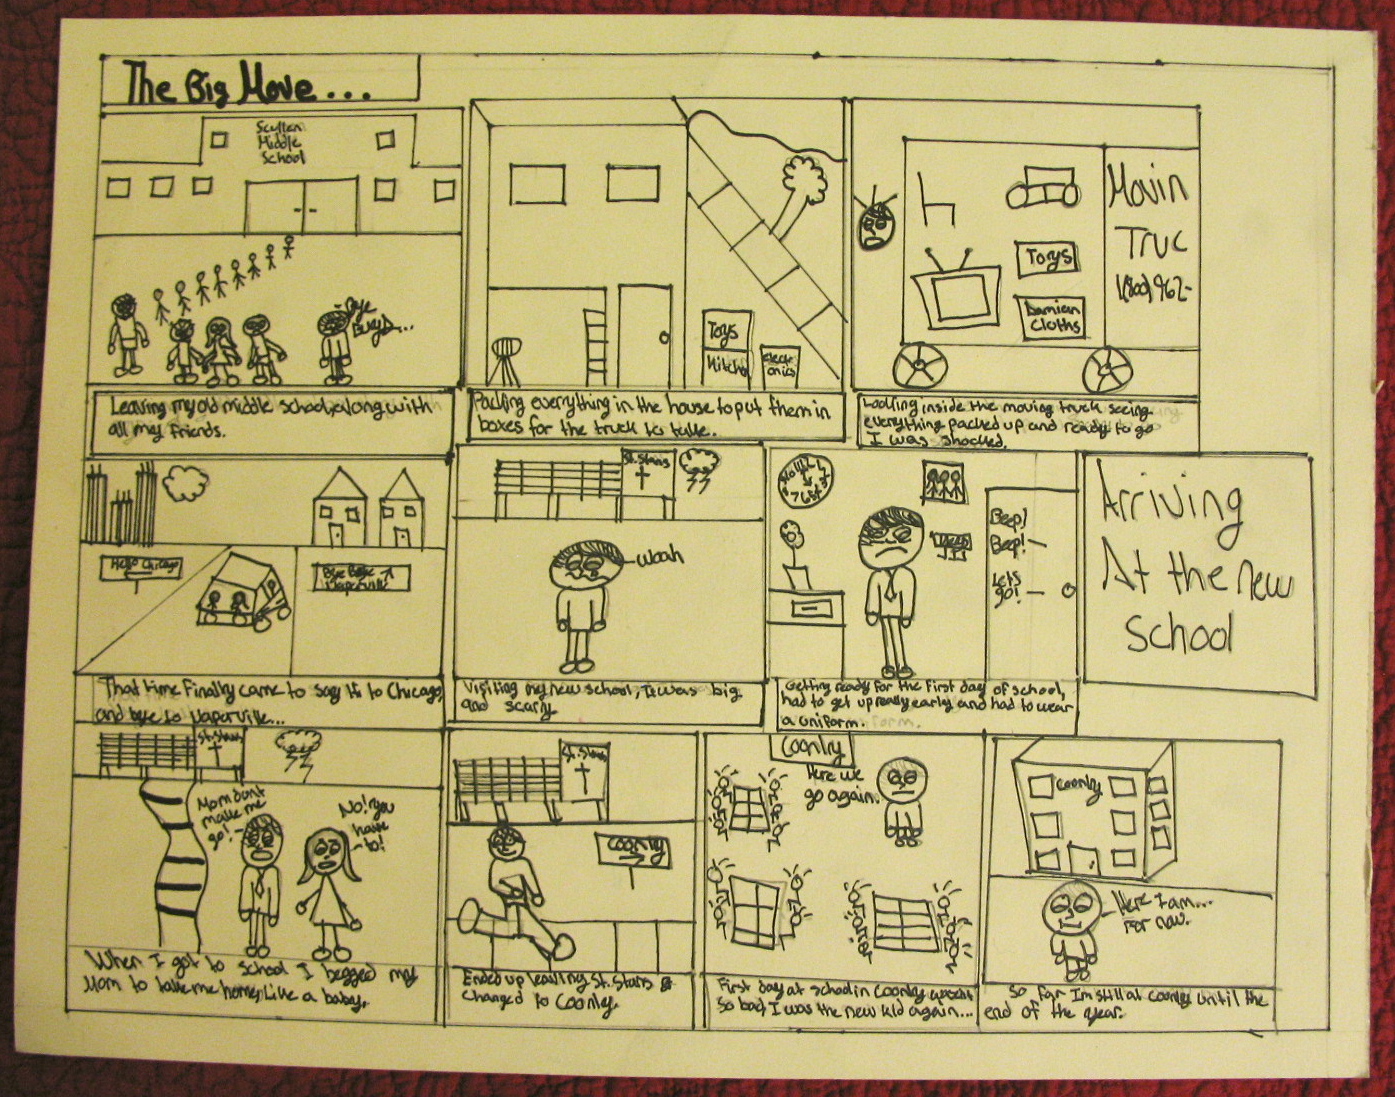 The Big Move...
Scullen
Middle
School
Bye
Guys...
Leaving my old middle school, along with
all my friends.
Toys
Kitchen
Elect
onics
Packing everything in the house to put them in
boxes for the truck to take.
Toys
Damian
Cloths
Movin
Truc
1(800)962-
Looking inside the moving truck seeing
everything packed up and ready to go
I was shocked.
Hello Chicago
Bye Bye
Naperville
That time Finally came to say Hi to Chicago,
and bye to Naperville...
St. Stans
Woah
Visiting my new school, It was big
and scary.
Beep!
Beep!
Lets
go!
Getting ready for the first day of school,
had to get up really early and had to wear
a uniform.
Arriving
At the new
School
St. Stans
Mom dont
make me
go!
No! you
have
to!
When I got to school I begged my
Mom to take me home, Like a baby.
St. Stans
Coonley
Ended up leaving St. Stans &
changed to Coonley.
Coonley
Here we
go again.
First day at school in Coonley wasnt
so bad, I was the new kid again...
Coonley
Here I am...
For now.
So far Im still at Coonley until the
end of the year.